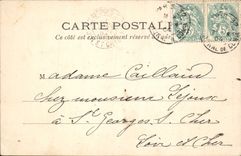 CARTE POSTALE
Ce côté est exclusivement réservé à l'adresse
Madame Caillaud
chez monsieur Lejoux
à St Georges s. Cher
Loir et Cher